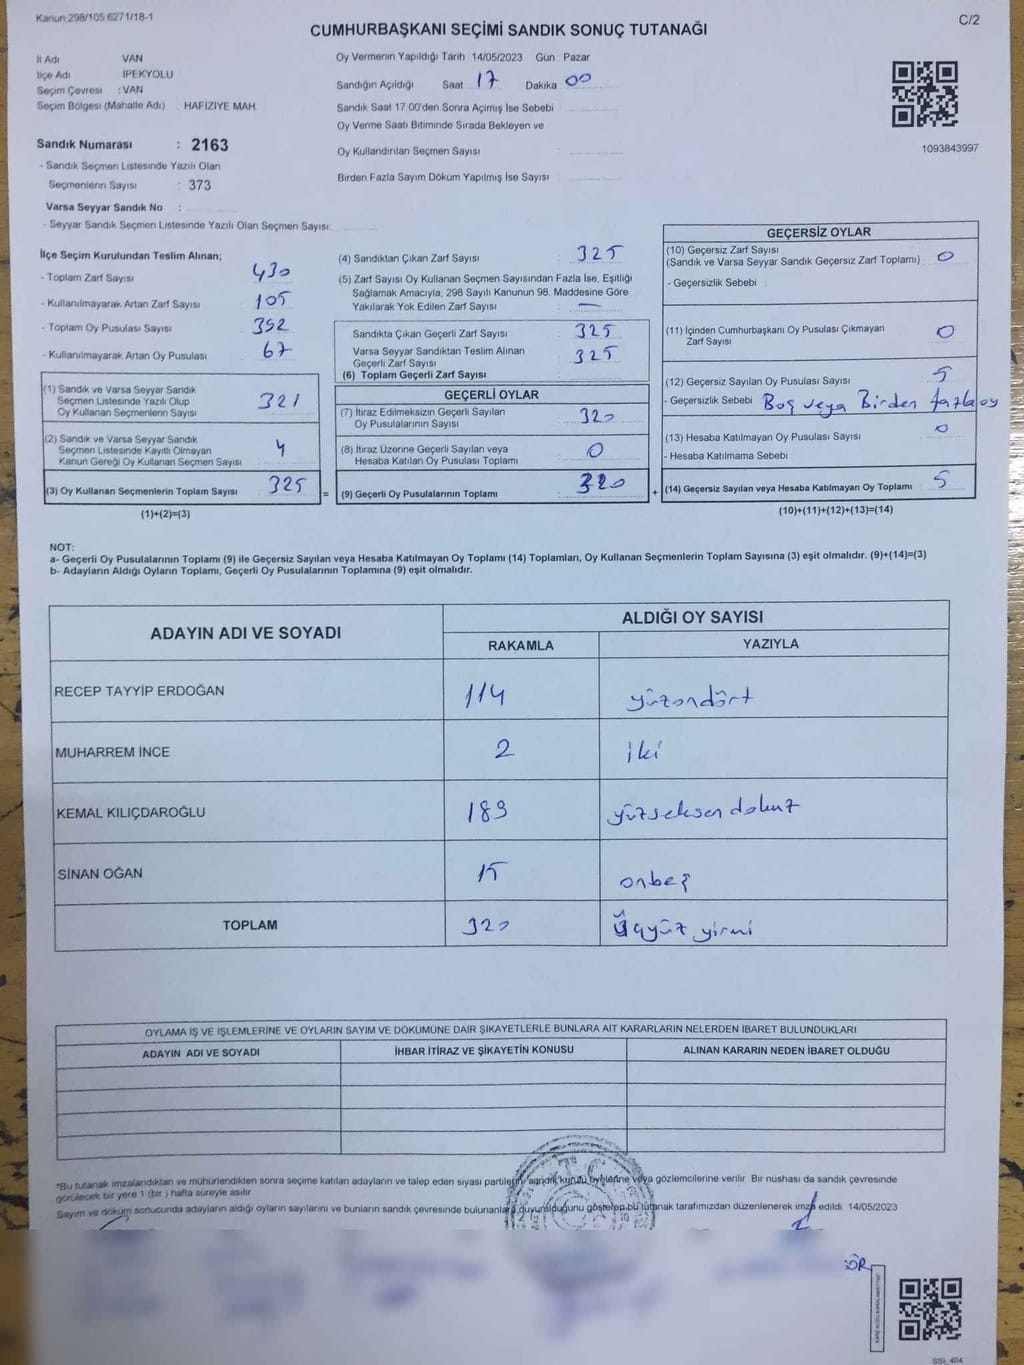 Kanun:298/105,6271/18-1
C/2
CUMHURBAŞKANI SEÇİMİ SANDIK SONUÇ TUTANAĞI
İl Adı VAN
İlçe Adı İPEKYOLU
Seçim Çevresi : VAN
Seçim Bölgesi (Mahalle Adı) : HAFİZİYE MAH.
Sandık Numarası : 2163
- Sandık Seçmen Listesinde Yazılı Olan
Seçmenlerin Sayısı : 373
Varsa Seyyar Sandık No :
- Seyyar Sandık Seçmen Listesinde Yazılı Olan Seçmen Sayısı:
Oy Vermenin Yapıldığı Tarih 14/05/2023 Gün : Pazar
Sandığın Açıldığı Saat 17 Dakika 00
Sandık Saat 17.00'den Sonra Açımış İse Sebebi
Oy Verme Saati Bitiminde Sırada Bekleyen ve
Oy Kullandırılan Seçmen Sayısı :
Birden Fazla Sayım Döküm Yapılmış İse Sayısı :
1093843997
İlçe Seçim Kurulundan Teslim Alınan;
- Toplam Zarf Sayısı 430
- Kullanılmayarak Artan Zarf Sayısı : 105
- Toplam Oy Pusulası Sayısı : 392
- Kullanılmayarak Artan Oy Pusulası : 67
(1) Sandık ve Varsa Seyyar Sandık
Seçmen Listesinde Yazılı Olup
Oy Kullanan Seçmenlerin Sayısı 321
(2) Sandık ve Varsa Seyyar Sandık
Seçmen Listesinde Kayıtlı Olmayan
Kanun Gereği Oy Kullanan Seçmen Sayısı 4
(3) Oy Kullanan Seçmenlerin Toplam Sayısı 325 =
(1)+(2)=(3)
(4) Sandıktan Çıkan Zarf Sayısı : 325
(5) Zarf Sayısı Oy Kullanan Seçmen Sayısından Fazla İse, Eşitliği
Sağlamak Amacıyla, 298 Sayılı Kanunun 98. Maddesine Göre
Yakılarak Yok Edilen Zarf Sayısı : —
Sandıkta Çıkan Geçerli Zarf Sayısı : 325
Varsa Seyyar Sandıktan Teslim Alınan
Geçerli Zarf Sayısı : 325
(6) Toplam Geçerli Zarf Sayısı
GEÇERLİ OYLAR
(7) İtiraz Edilmeksizin Geçerli Sayılan
Oy Pusulalarının Sayısı : 320
(8) İtiraz Üzerine Geçerli Sayılan veya
Hesaba Katılan Oy Pusulası Toplamı : 0
(9) Geçerli Oy Pusulalarının Toplamı : 320 +
GEÇERSİZ OYLAR
(10) Geçersiz Zarf Sayısı
(Sandık ve Varsa Seyyar Sandık Geçersiz Zarf Toplamı) : 0
- Geçersizlik Sebebi
(11) İçinden Cumhurbaşkanı Oy Pusulası Çıkmayan
Zarf Sayısı 0
(12) Geçersiz Sayılan Oy Pusulası Sayısı 5
- Geçersizlik Sebebi Boş veya Birden fazla oy
(13) Hesaba Katılmayan Oy Pusulası Sayısı 0
- Hesaba Katılmama Sebebi
(14) Geçersiz Sayılan veya Hesaba Katılmayan Oy Toplamı 5
(10)+(11)+(12)+(13)=(14)
NOT:
a- Geçerli Oy Pusulalarının Toplamı (9) ile Geçersiz Sayılan veya Hesaba Katılmayan Oy Toplamı (14) Toplamları, Oy Kullanan Seçmenlerin Toplam Sayısına (3) eşit olmalıdır. (9)+(14)=(3)
b- Adayların Aldığı Oyların Toplamı, Geçerli Oy Pusulalarının Toplamına (9) eşit olmalıdır.
ADAYIN ADI VE SOYADI ALDIĞI OY SAYISI
RAKAMLA YAZIYLA
RECEP TAYYİP ERDOĞAN 114 yüzondört
MUHARREM İNCE 2 iki
KEMAL KILIÇDAROĞLU 189 yüzseksen dokuz
SİNAN OĞAN 15 onbeş
TOPLAM 320 Üçyüz yirmi
OYLAMA İŞ VE İŞLEMLERİNE VE OYLARIN SAYIM VE DÖKÜMÜNE DAİR ŞİKAYETLERLE BUNLARA AİT KARARLARIN NELERDEN İBARET BULUNDUKLARI
ADAYIN ADI VE SOYADI İHBAR İTİRAZ VE ŞİKAYETİN KONUSU ALINAN KARARIN NEDEN İBARET OLDUĞU
*Bu tutanak imzalandıktan ve mühürlendikten sonra seçime katılan adayların ve talep eden siyasi partilerin sandık kurulu üyelerine veya gözlemcilerine verilir. Bir nüshası da sandık çevresinde
görülecek bir yere 1 (bir ) hafta süreyle asılır.
Sayım ve döküm sonucunda adayların aldığı oyların sayılarını ve bunların sandık çevresinde bulunanlara duyurulduğunu gösteren bu tutanak tarafımızdan düzenlenerek imza edildi. 14/05/2023
T.C.
SSI_404